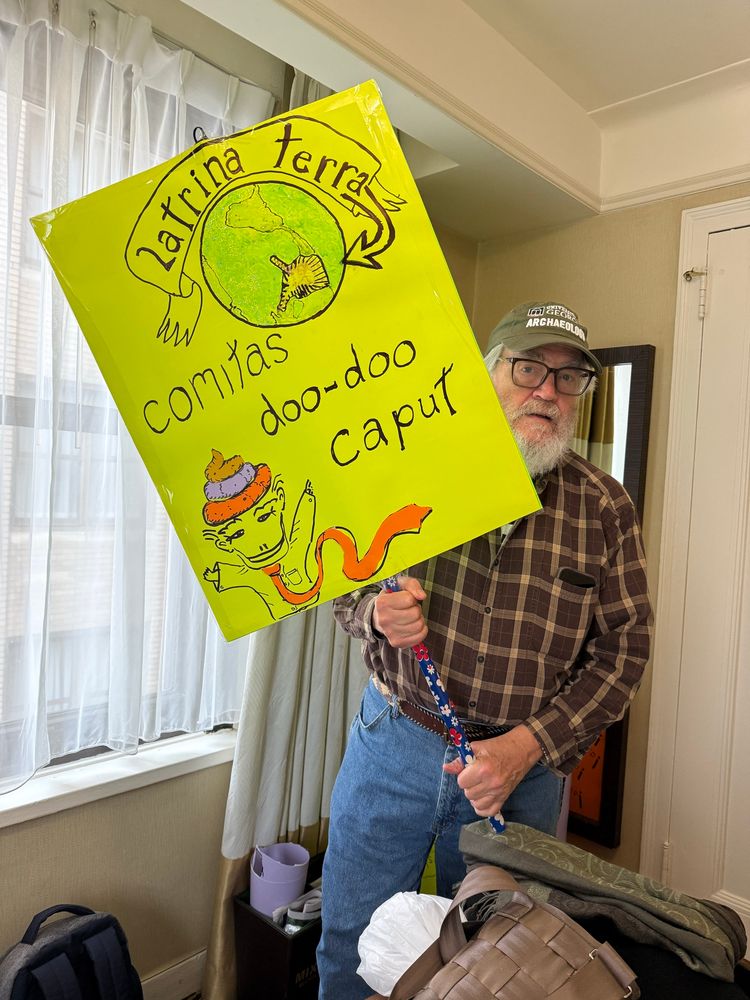 latrina terra
comitas
doo-doo
caput
ARCHAEOLOGY